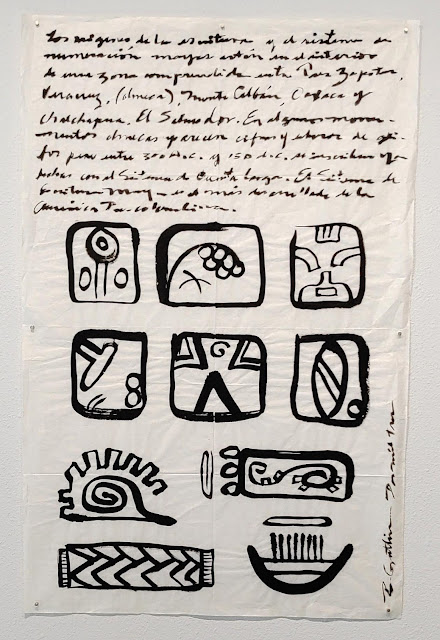 Los orígenes de la escritura y el sistema de
numeración mayas están en el interior
de una zona comprendida entre Tres Zapotes,
Veracruz, (olmeca), Monte Albán, Oaxaca y
Chalchuapa, El Salvador. En algunos monu-
mentos olmecas aparecen cifras y esbozos de gli-
fos pero entre 300 a.c. y 150 d.c. se inscriben ya
fechas con el Sistema de Cuenta Larga. El Sistema de
escritura maya es el más desarrollado de la
América Precolombina.